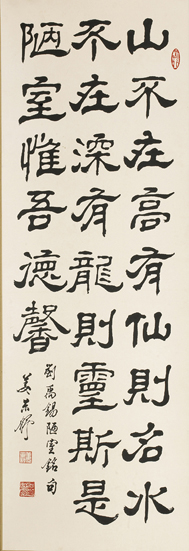 山不在高有仙則名水
不在深有龍則靈斯是
陋室惟吾德馨
劉禹錫陋室銘句